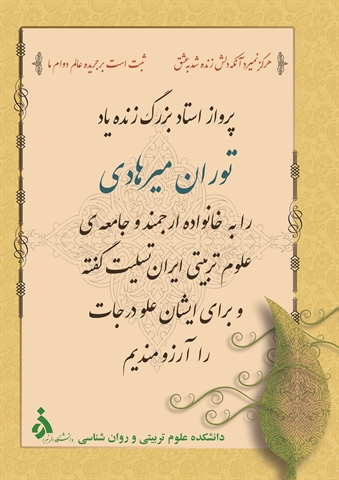 هرگز نمیرد آنکه دلش زنده شد به عشق ثبت است بر جریده عالم دوام ما
پرواز استاد بزرگ زنده یاد
توران میرهادی
را به خانواده ارجمند و جامعه ی
علوم تربیتی ایران تسلیت گفته
و برای ایشان علو درجات
را آرزومندیم
دانشکده علوم تربیتی و روان شناسی دانشگاه الزهرا